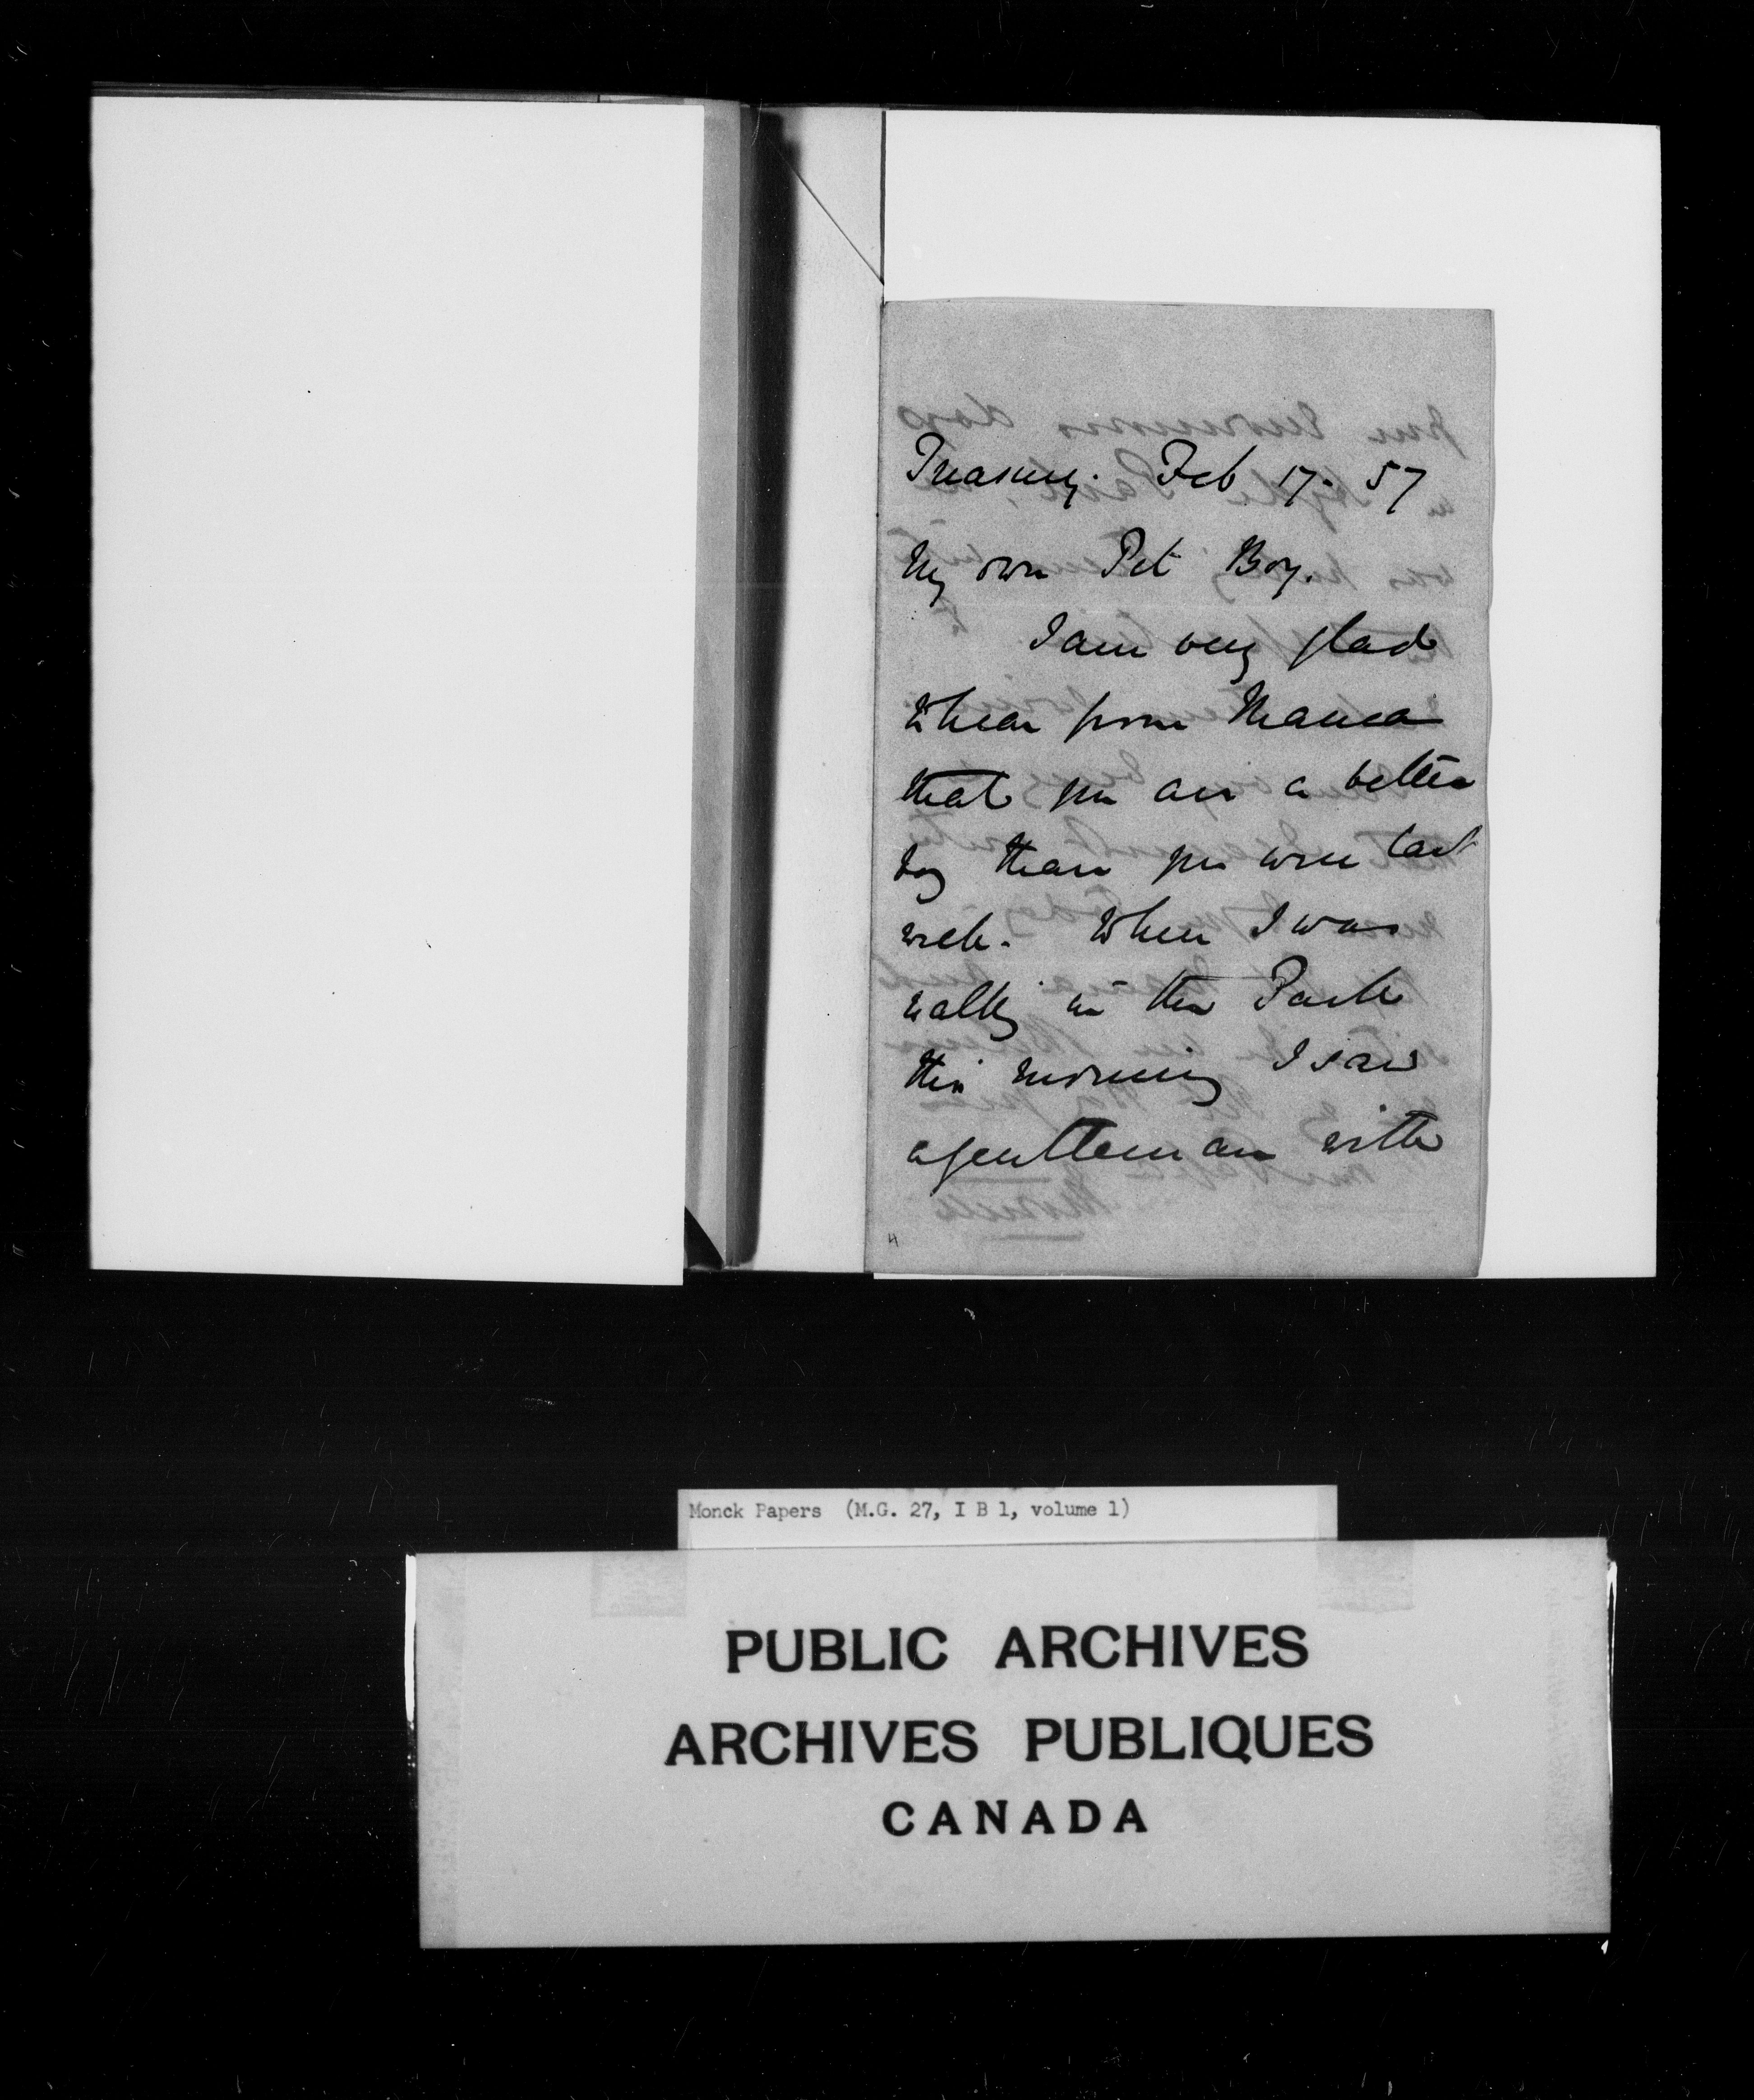 Treasury. Feb 17. 57
My own Pet Boy.
I am very glad
to hear from Mama
that you are a better
boy than you were last
week. When I was
walking in the Park
this morning I saw
a gentleman with
4
Monck Papers (M.G. 27, I B 1, volume 1)
PUBLIC ARCHIVES
ARCHIVES PUBLIQUES
CANADA